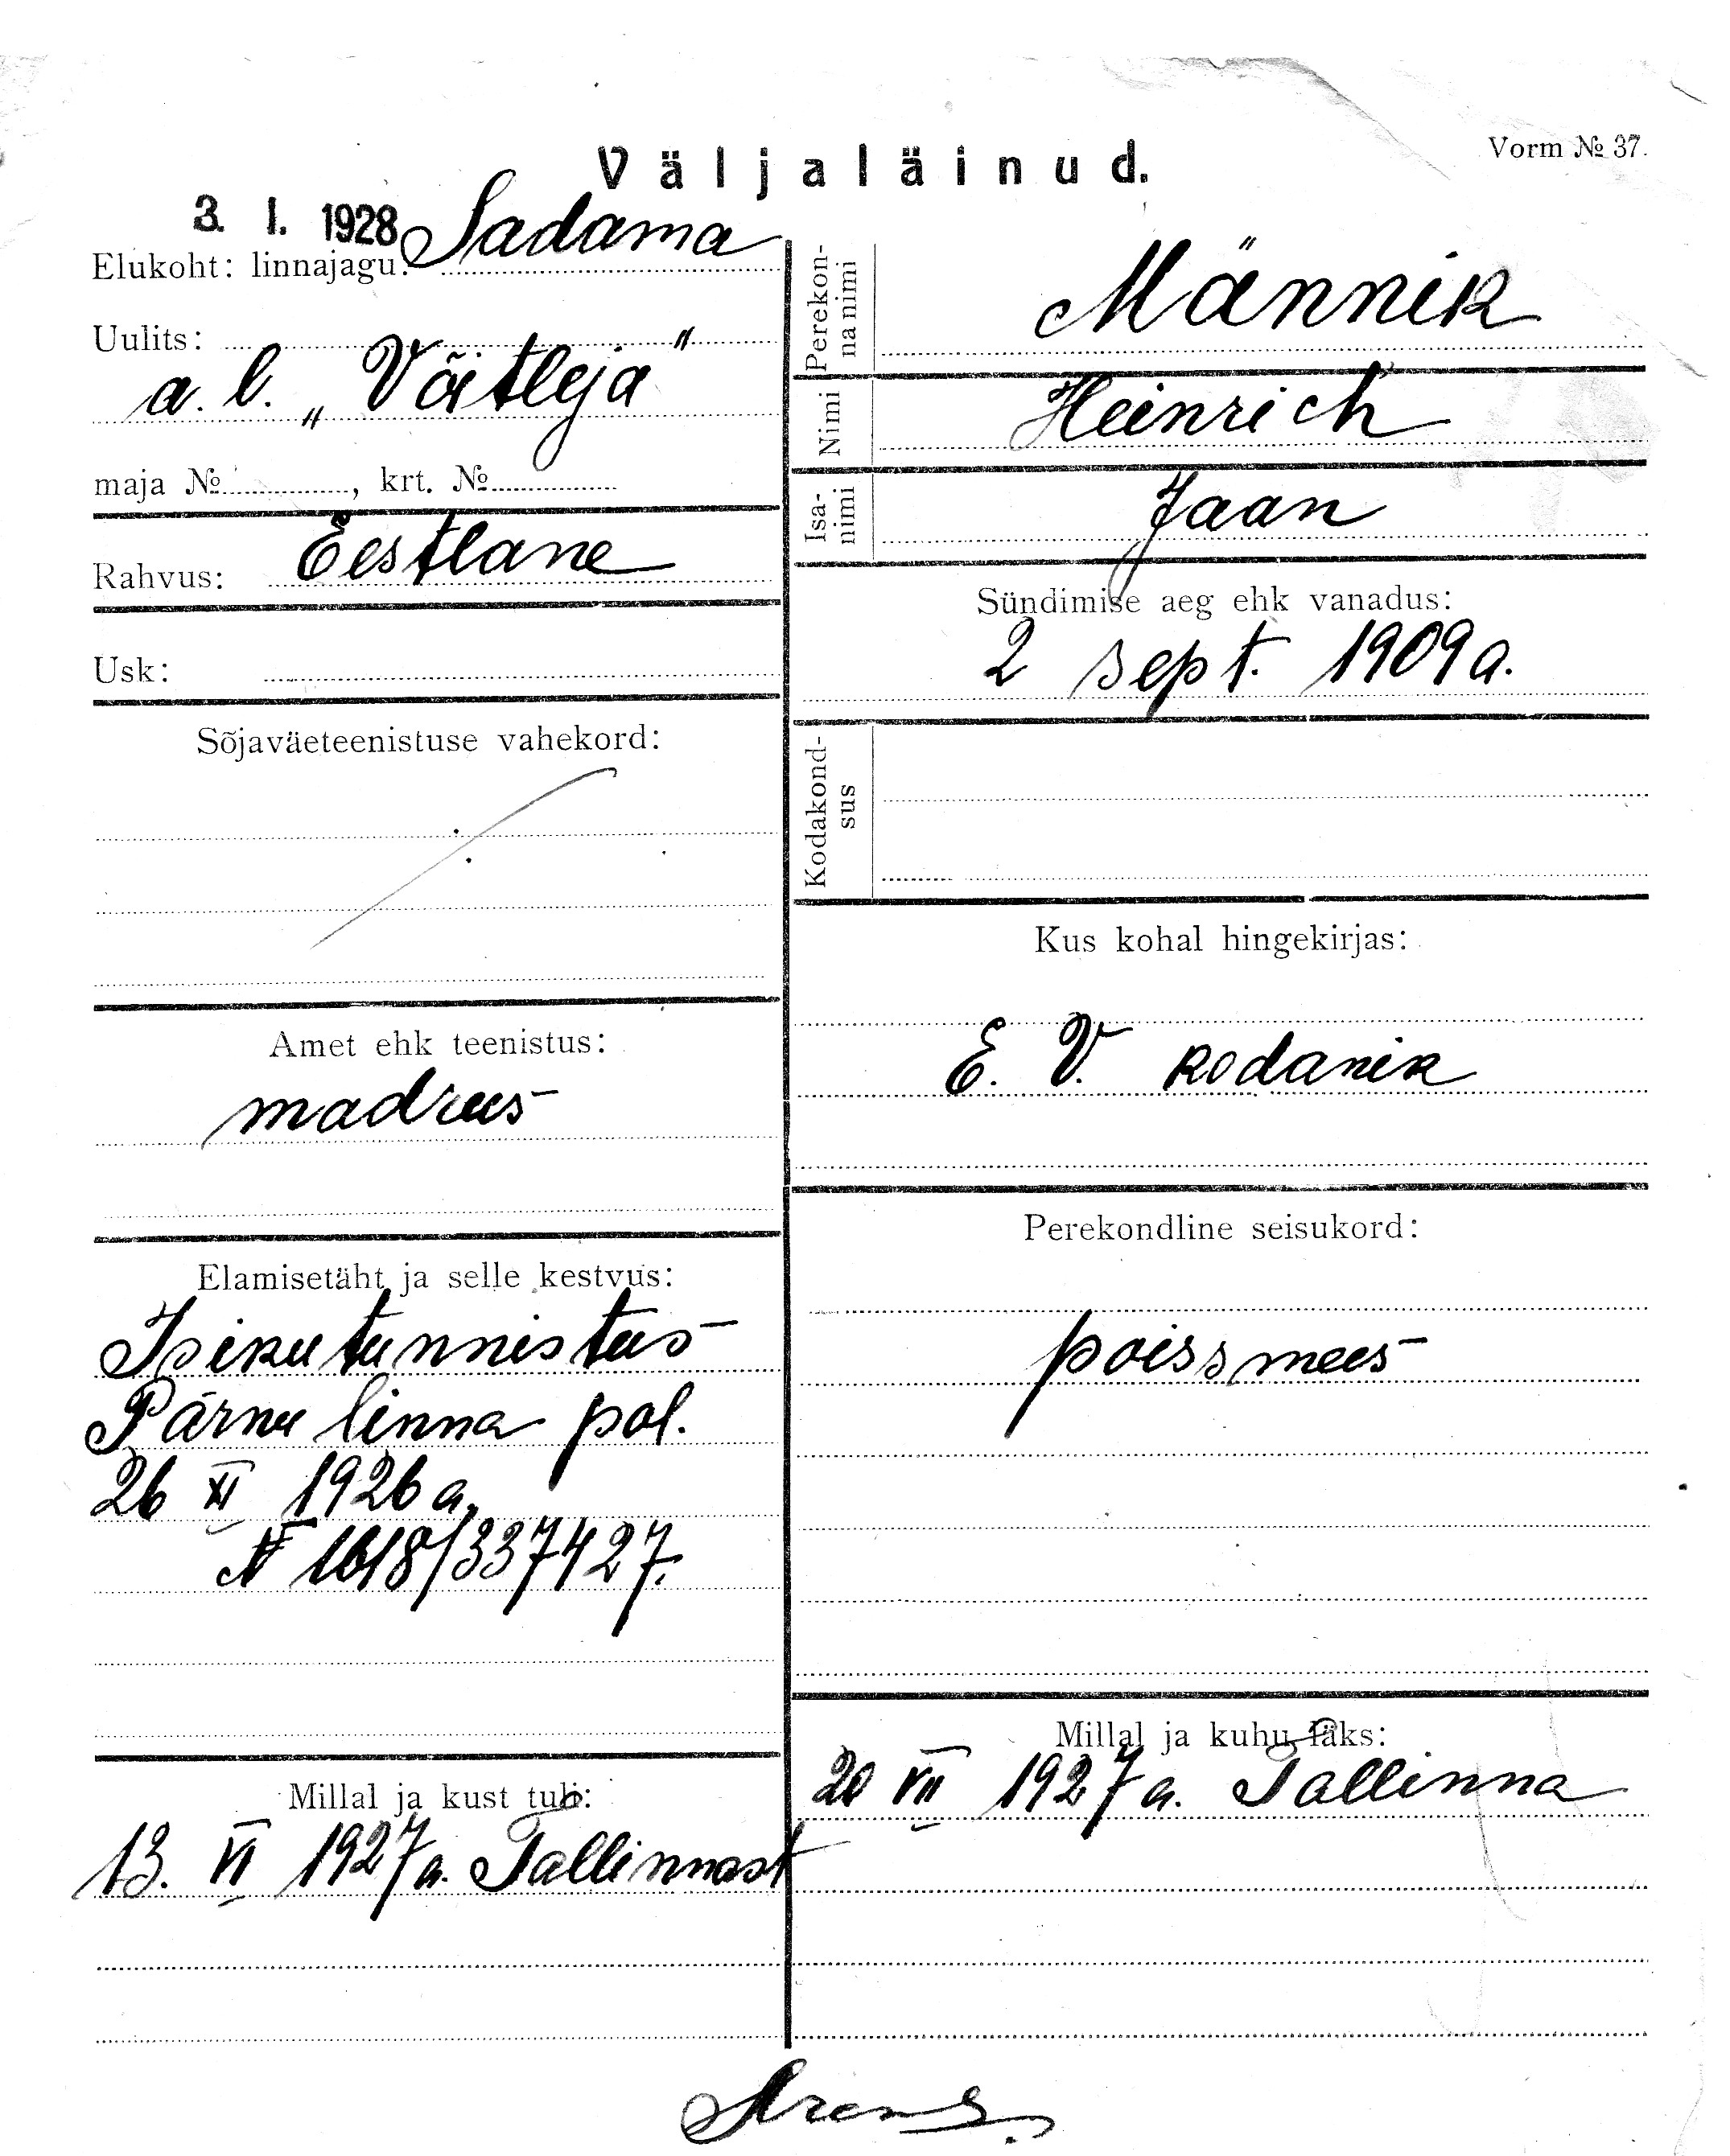 Vorm № 37.
Väljaläinud.
3. I. 1928
Elukoht: linnajagu: Sadama
Uulits:
a. l. „Võitleja"
maja № , krt. №
Rahvus: Eestlane
Usk:
Sõjaväeteenistuse vahekord:
Amet ehk teenistus:
madrus
Elamisetäht ja selle kestvus:
Isikutunnistus
Pärnu linna pol.
26 XI 1926 a.
№ 1618/337427.
Millal ja kust tuli:
13. VI 1927 a. Tallinnast
Perekonna nimi
Männik
Nimi
Heinrich
Isanimi
Jaan
Sündimise aeg ehk vanadus:
2 sept. 1909 a.
Kodakondsus
Kus kohal hingekirjas:
E. V. kodanik
Perekondline seisukord:
poissmees
Millal ja kuhu läks:
20 VII 1927 a. Tallinna